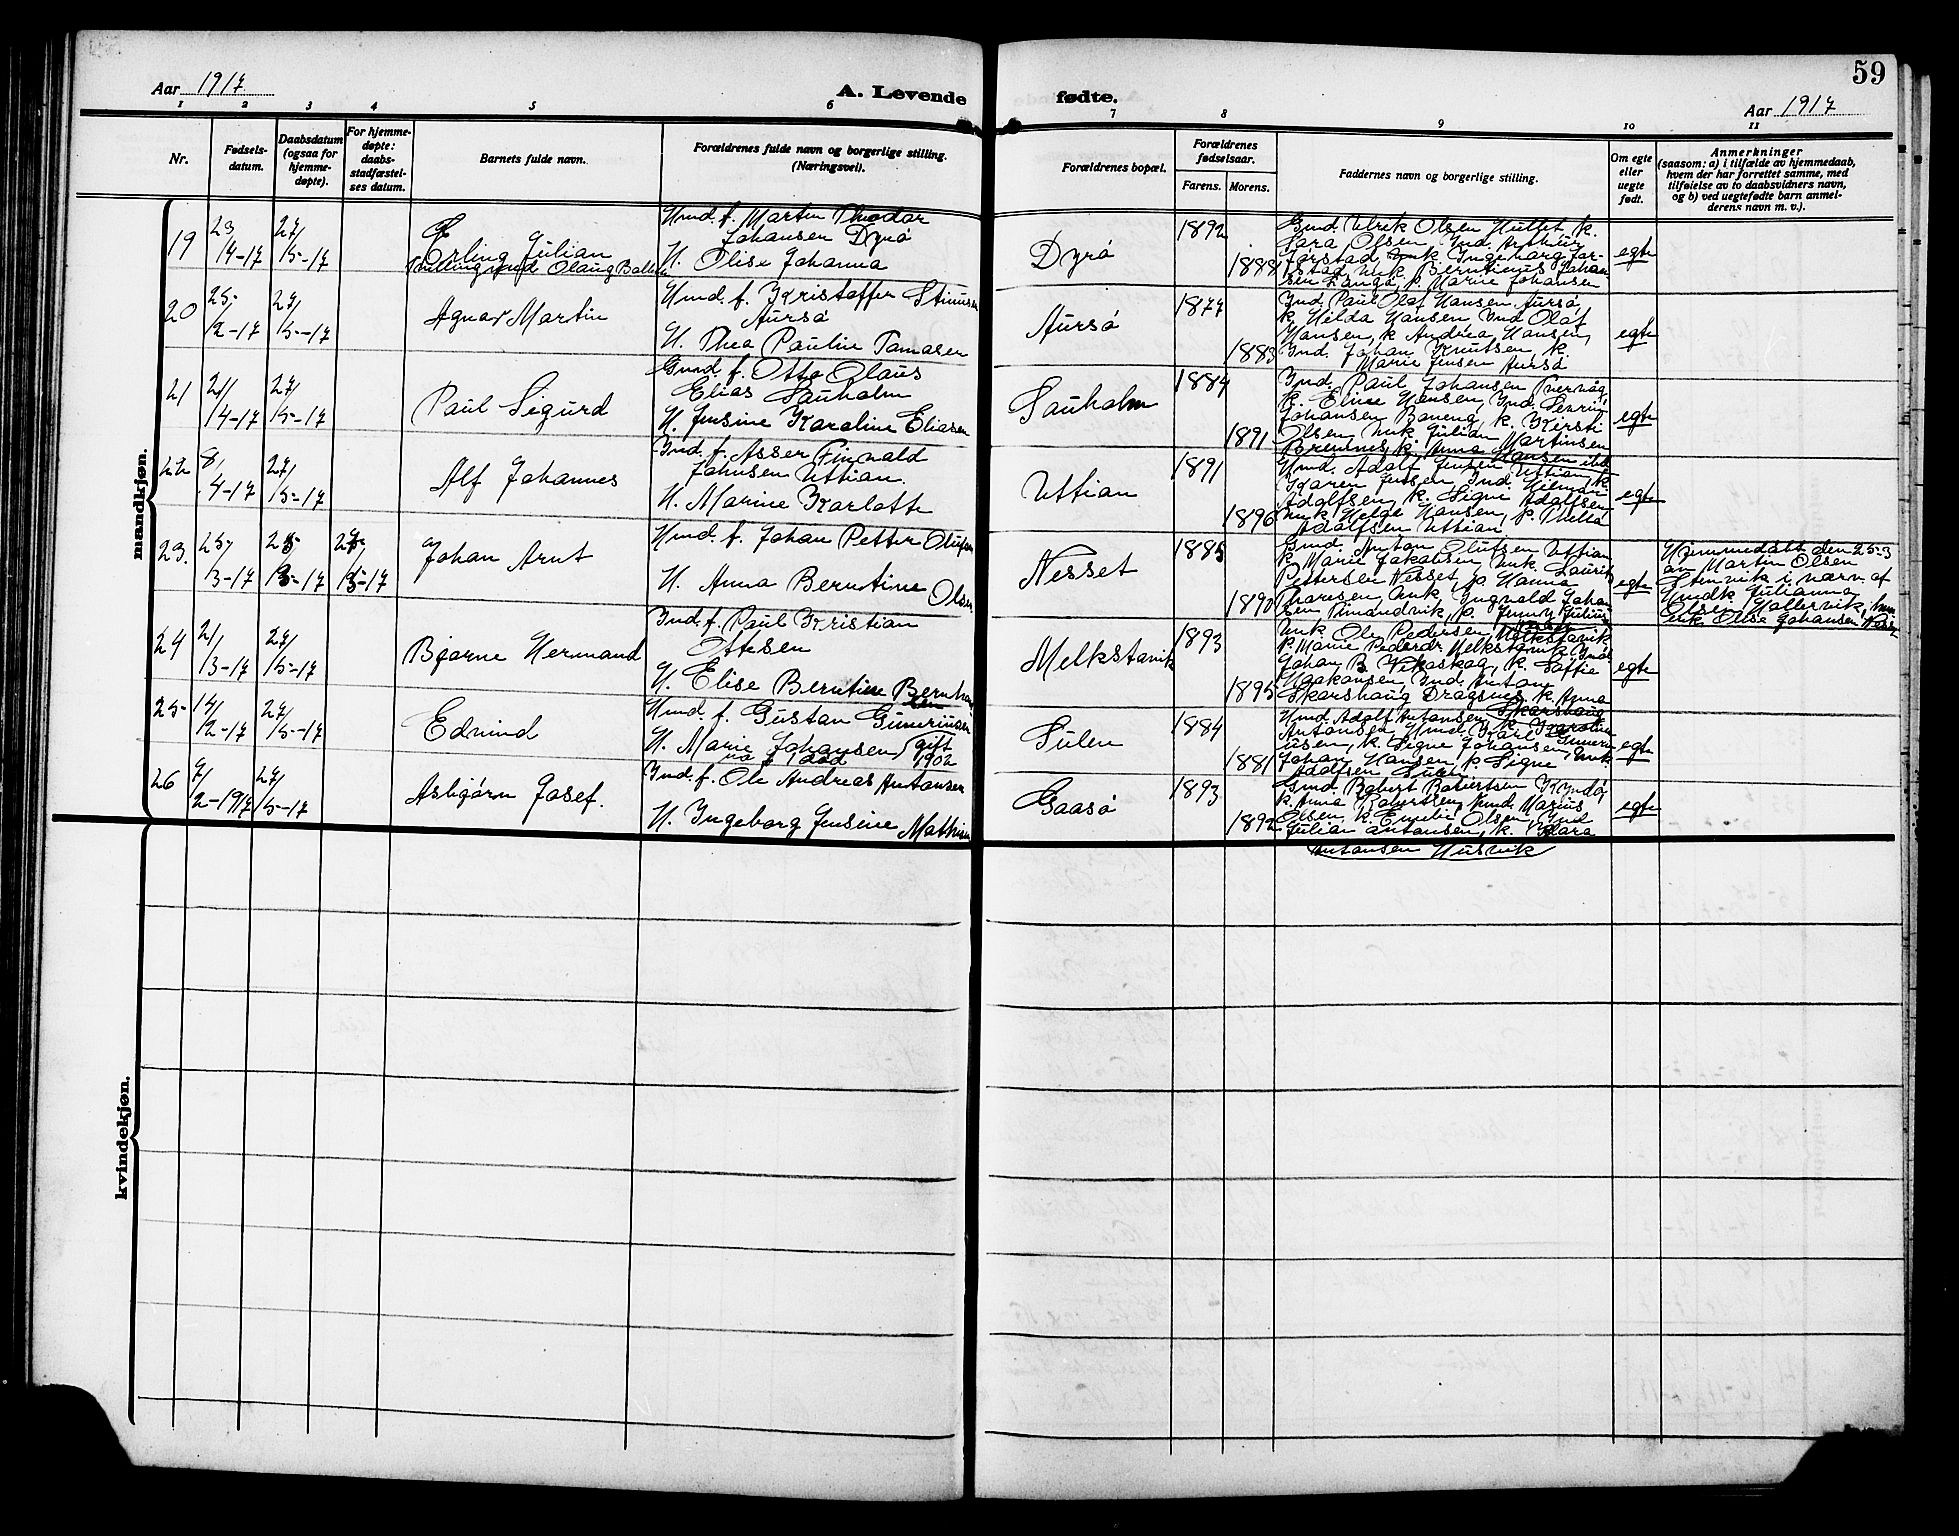 59
Aar 1917
A. Levende
fødte.
Aar 1917
1 2 3 4 5 6 7 8 9 10 11
Nr.
Fødsels-
datum.
Daabsdatum
(ogsaa for
hjemme-
døpte).
For hjemme-
døpte:
daabs-
stadfæstel-
ses datum.
Barnets fulde navn.
Forældrenes fulde navn og borgerlige stilling.
(Næringsvei).
Forældrenes bopæl.
Forældrenes
fødselsaar.
Farens. Morens.
Faddernes navn og borgerlige stilling.
Om egte
eller
uegte
født.
Anmerkninger
(saasom: a) i tilfælde av hjemmedaab,
hvem der har forrettet samme, med
tilføielse av to daabsvidners navn,
og b) ved uegtefødte barn anmel-
derens navn m. v.).
mandkjøn.
19
23/
14-17
27/
15-17
Erling Julian
Tvilling med Olaug
Hmd. f. Martin Theodor
Johansen Dyrø
H. Olise Johanna
Dyrø
1892
1888
Gmd. Ulrik Olsen Hultet k.
Sara Olsen, Ind. Arthur
Jørstad, Ungk. Ingeborg Jør-
stad, Ungk. Berntinus Johan
sen Langø, p. Marie Johansen
egte
20
25/
12-17
27/
15-17
Agnar Martin
Hmd. f. Kristoffer
Aursø
H. Thea Pauline Tomasen
Aursø
1877
1883
Ind. Paul Olaf Hansen, Aursø,
k. Hilda Hansen Ind Olaf
Hansen, k. Andrea Hansen,
Ind. Johan Knutsen k.
Marie Jensen Aursø
egte
21
21/
14-17
27/
15-17
Paul Sigurd
Gmd. f. Otto Olaus
Elias Sauholm
H. Jensine Karoline Eliasen
Sauholm
1884
1891
Ind. Paul Johansen
k. Eline Hansen, Ind.
Johansen k. Kirsti
Olsen, Ungk. Julian Martinsen
Bremnes, k. Anna Hansen ibid
egte
22
8/
4-17
27/
15-17
Alf Johannes
Ind. f. Asser Finvald
Johnsen Uttian.
H. Marine Karlotte
Uttian
1891
1896
Hmd. Adolf Jensen Uttian, k
Karen Jensen, Ind. Hilmar
Adolfsen, k. Signe Adolfsen
Ungk. Helge Hansen, p. Thella
Adolfsen Uttian
egte
23.
25/
13-17
27/
15-17
Johan Arnt
Hmd. f. Johan Petter Olufsen
H. Anna Berntine Olsen
Nesset
1885
1890
Gmd. Anton Olufsen Uttian
k. Marie Jakobsen, Ungk. Laurits
Pettersen Nesset, p. Hanna
Tharesen, Ungk. Ingvald Johan
sen p. Jenny
egte
Hjemmedøbt den 25-3
av Martin Olsen
Stenvik i nærv. af
Julianna
Olsen
Olise Johansen
24
21/
13-17
27/
15-17
Bjarne Hermand
Ind. f. Paul Kristian
Ottesen
H. Elise Berntine Bernhardsen
Melkstavik
1893
1895
Ungk. Ole Pedersen, Melkstavik
p. Marie Pedersdr. Melkstavik Ind.
Johan B. Vikaskag, k. Soffie
Haakonsen Ind. Anton
Skarshaug Dragsnes, k. Anna
Skarshaug
egte
25
14/
12-17
27/
15-17
Edvind
Hmd. f. Gustav Gunerinsen
H. Marie Johansen (gift
1902
Sulen
1884
1881
Hmd. Adolf Antonsen, k. Karoline
Antonsen, Hmd. Karl
k. Signe Johansen
Johan Hansen, p. Signe
Adolfsen Sulen
egte
26
7/
2-1917
27/
15-17
Asbjørn Josef.
Ind. f. Ole Andreas Antonsen
H. Ingeborg Jensine Mathisen
Gaasø
1893
1892
Gmd. Robert Robertsen
k. Anna Robertsen, Hmd. Marius
Olsen, k. Emilie Olsen, Ind
Julian Antonsen, k. Klara
Antonsen Husvik
egte
kvindekjøn.